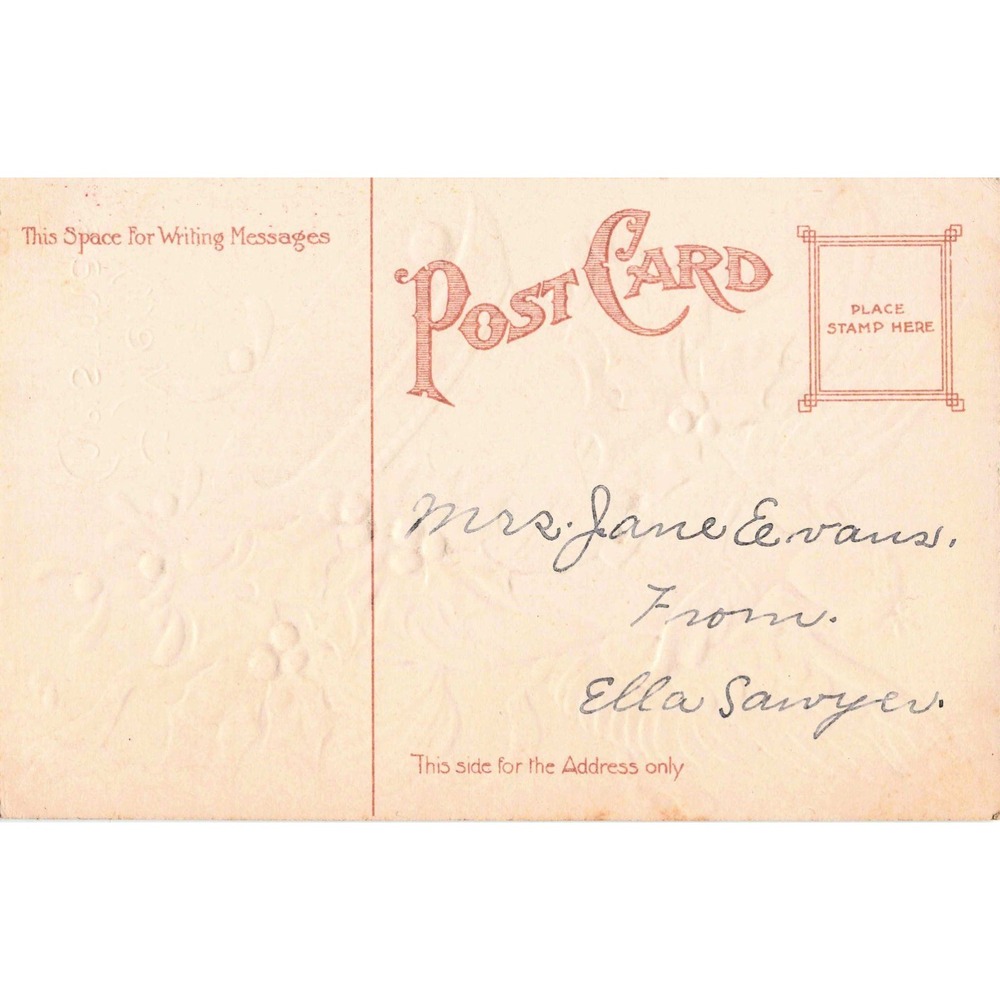 This Space For Writing Messages
POST CARD
PLACE
STAMP HERE
Mrs. Jane Evans.
From.
Ella Sawyer.
This side for the Address only